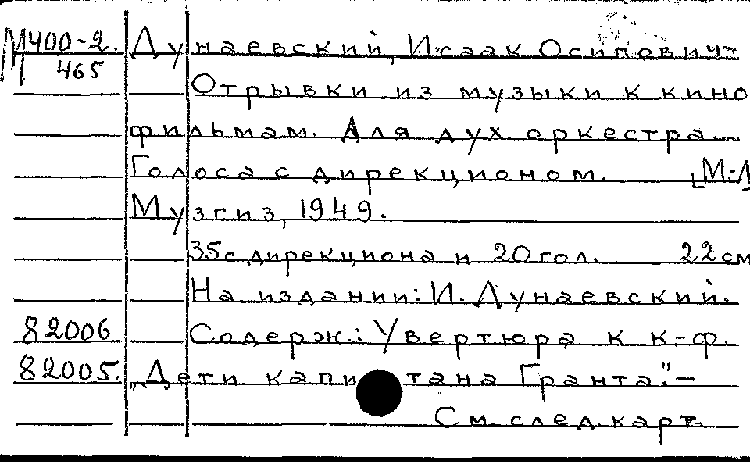 М400-2. Дунаевский, Исаак Осипович-
465
Отрывки из музыки к кино
фильмам. Для дух оркестра.
Голоса с дирекционом. [М-Л
Музгиз, 1949.
35с дирекциона и 20 гол. 22 см
На издании: И. Дунаевский.
82006 Содерж.: Увертюра к к-ф.
82005. „Дети капитана Гранта".-
См. след. карт.